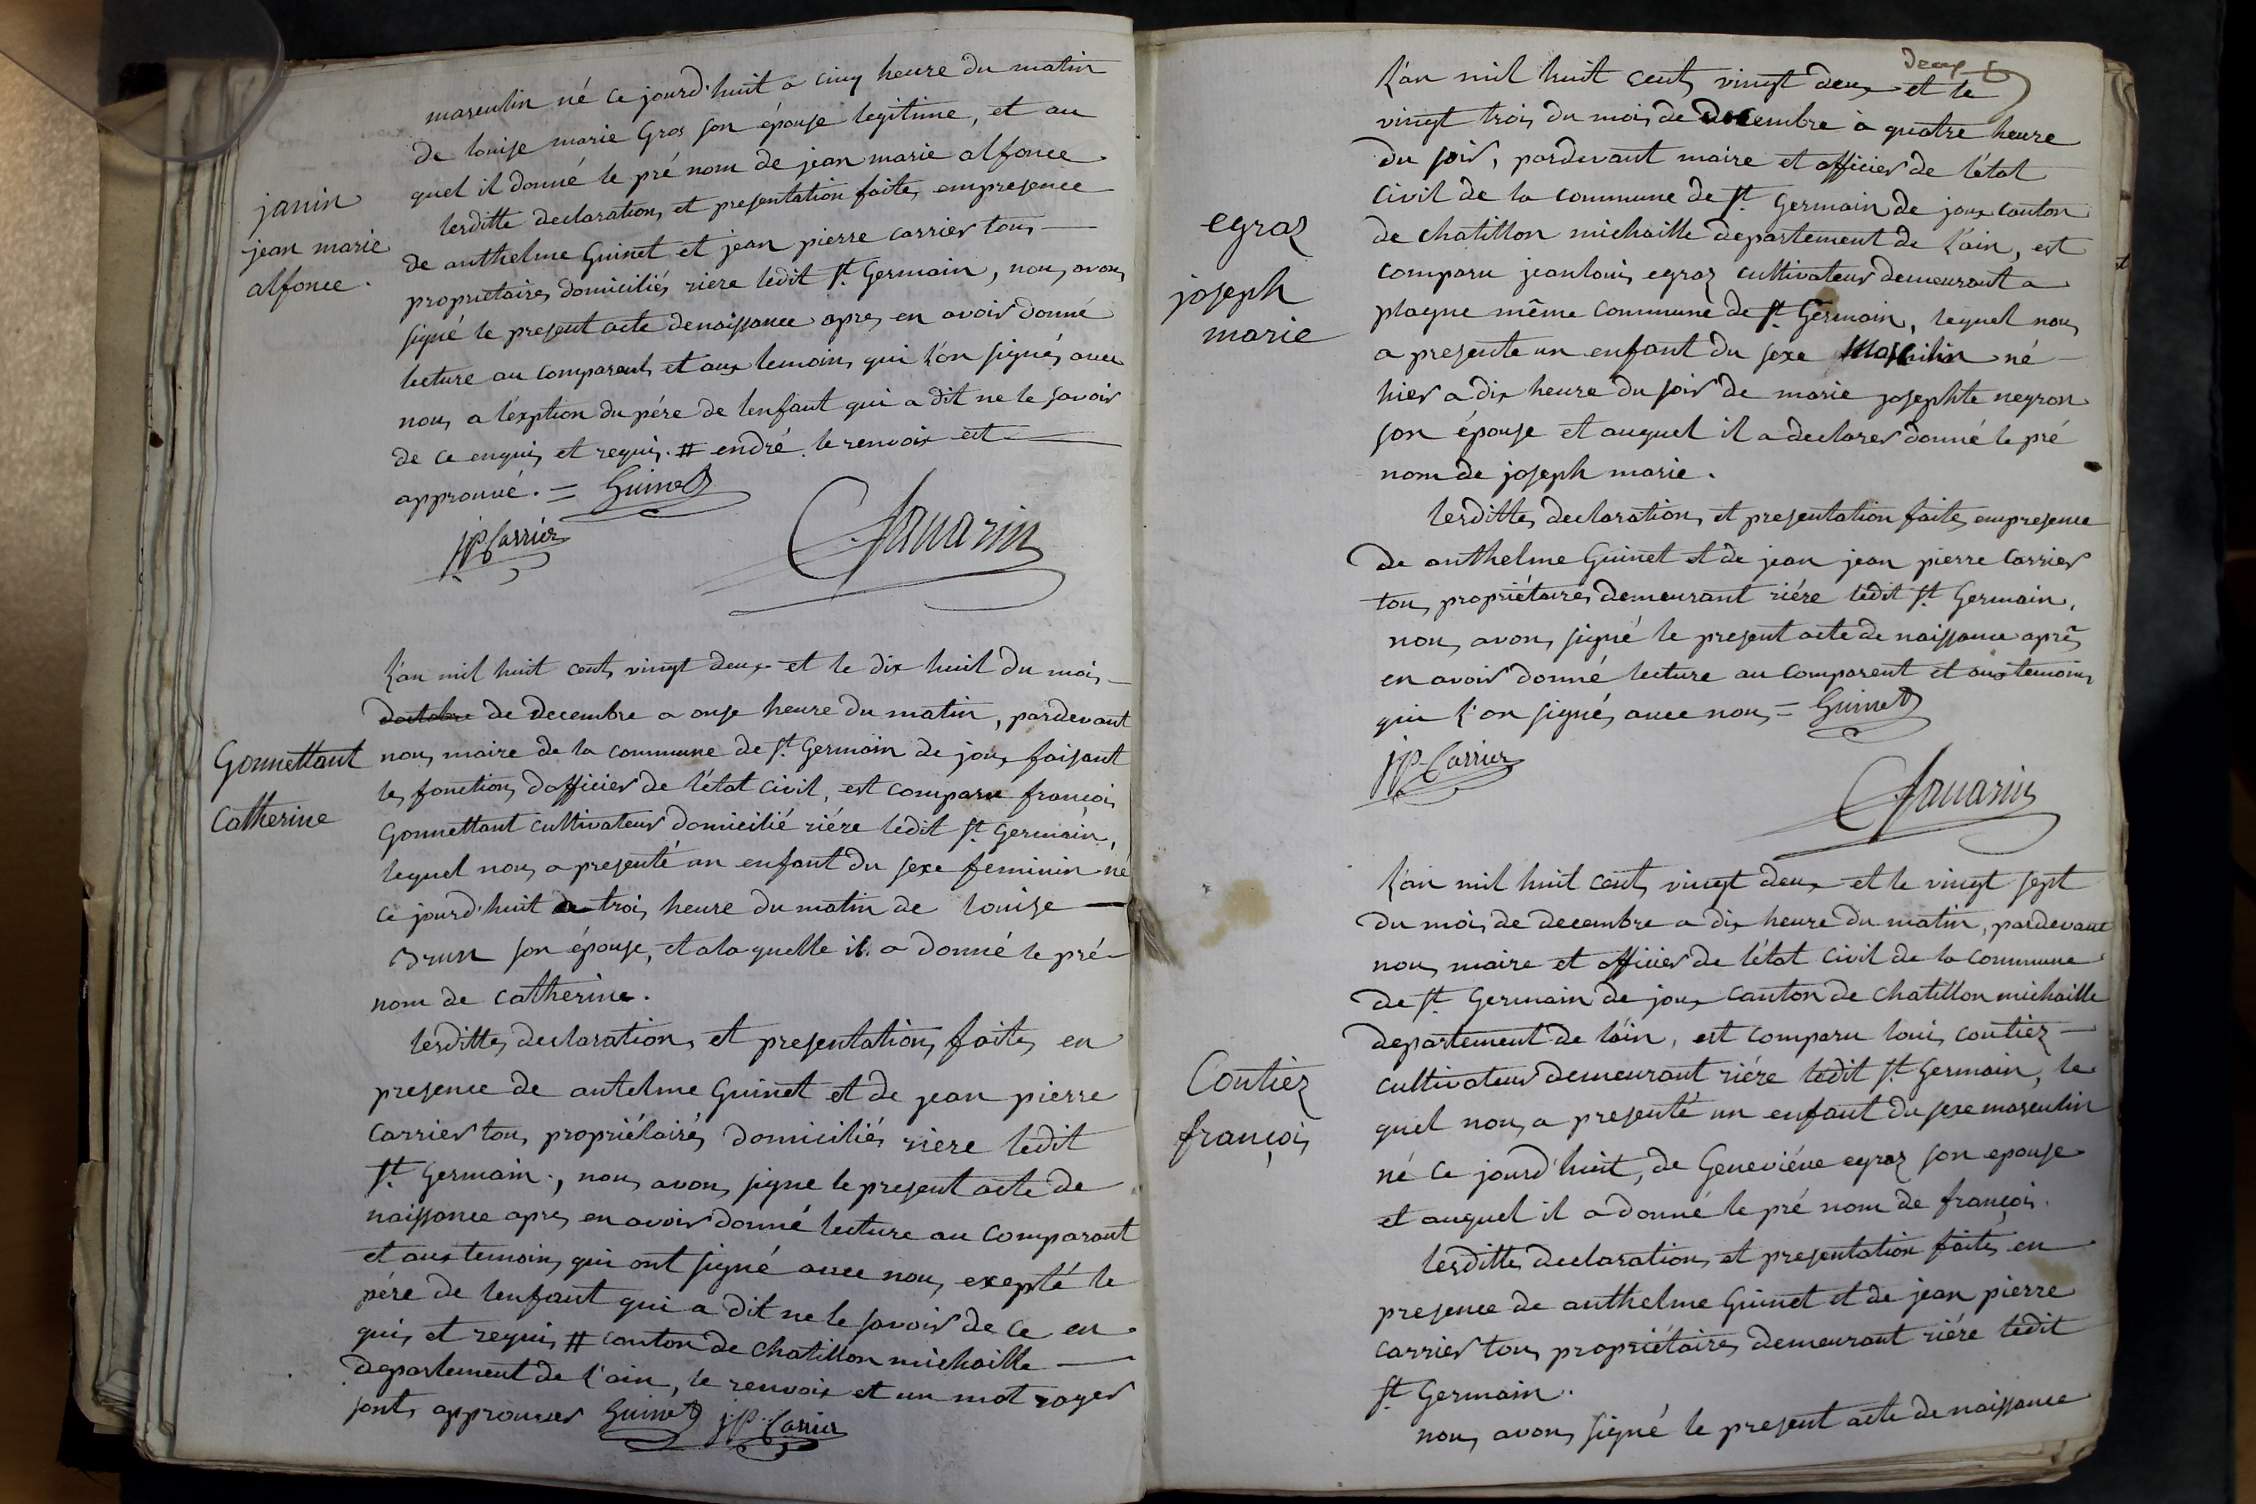 masculin né ce jourd'huit a cinq heure du matin
de louise marie Gros son épouse legitime, et au
quel il donné le pré nom de jean marie alfonce
janin
jean marie
alfonce.
lesditte declarations et presentation faites empresence
de anthelme Guinet et jean pierre carrier tous
proprietaires domiciliés riere ledit St. Germain, nous avons
signé le present acte denaissance apres en avoir donné
lecture au comparents et aux temoins qui l'on signés avec
nous a l'exption du pére de lenfant qui a dit ne le savoir
de ce enquis et requis. # endré. le renvoix est
approuvé. = Guinet
JP Carrier
Savarin
L'an mil huit cents vingt deux et le dix huit du mois
doctobre de decembre a onse heure du matin, pardevant
nous maire de la commune de St. Germain de joux faisant
les fonctions dofficier de l'état civil, est comparu françois
Gonnettant
Catherine
Gonnettant cultivateur domicilié riére ledit St. Germain,
lequel nous a presenté un enfant du sexe feminin né
ce jourd'huit a trois heure du matin de louise
Brun son épouse, et a laquelle il a donné le pré
nom de catherine.
lesdittes declarations et presentations faites en
presence de antelme Guinet et de jean pierre
carrier tous propriétairés domiciliés riere ledit
St. Germain, nous avons signe le present acte de
naissance apres en avoir donné lecture au comparant
et aux temoins qui ont signé avec nous exepté le
pére de lenfant qui a dit ne le savoir de ce en
quis et requis # canton de chatillon michaille
departement de l'ain, le renvoix et un mot rayer
sont approuver Guinet JP Carrier
deux
L'an mil huit cents vingt deux et le
vingt trois du mois de decembre à quatre heure
du soir, pardevant maire et officier de l'état
civil de la commune de St. Germain de joux canton
de chatillon michaille departement de l'ain, est
comparu jeanlouis egraz cultivateur demeurant a
egraz
joseph
marie
plagne même commune de St. Germain, lequel nous
a presente un enfant du sexe Masculin né
hier a dix heure du soir de marie josephte neyron
son épouse et auquel il a declarer donné le pré
nom de joseph marie.
lesdittes declarations et presentation faites empresence
de anthelme Guinet et de jean jean pierre Carrier
tous propriétaires demeurant riére ledit St. Germain,
nous avons signé le present acte de naissance aprés
en avoir donné lecture au comparent et aux temoins
qui l'on signés avec nous = Guinet
JP Carrier
Savarin
L'an mil huit cents vingt deux et le vingt sept
du mois de decembre a dix heure du matin, pardevant
nous maire et officier de l'état civil de la commune
de St. Germain de joux canton de chatillon michaille
departement de l'ain, est comparu louis coutiez
Coutiez
françois
cultivateur demeurant riére ledit St. Germain, le
quel nous a presenté un enfant du sexe masculin
né ce jourd'huit, de Geneviéve egraz son epouse
et auquel il a donné le pré nom de françois.
lesditte declarations et presentation faités en
presence de anthelme Guinet et de jean pierre
carrier tous propriétaires demeurant riére ledit
St. Germain.
nous avons signé le present acte de naissance